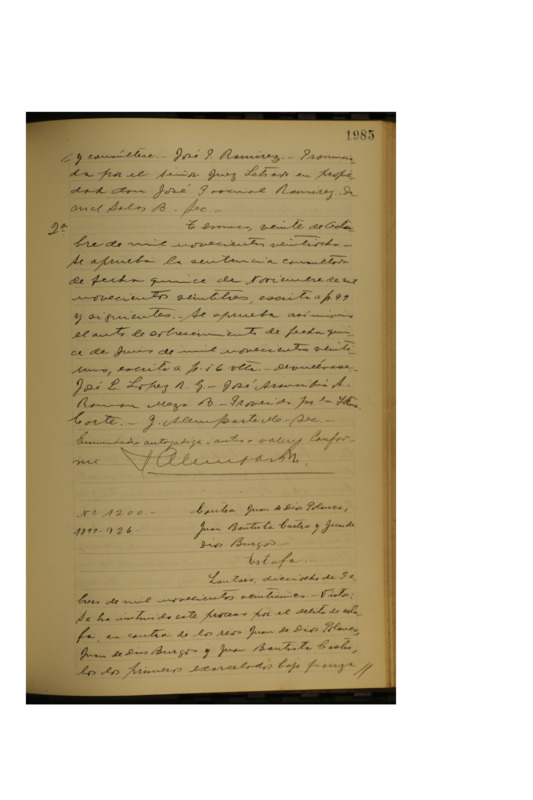 1985
y consúltese.- José P. Ramirez.- Pronuncia
da por el señor Juez Letrado en propie
dad don José Pascual Ramirez.
Salas B.- Sec.-
2ª Temuco, veinte de Octu
bre de mil novecientos veintiocho.-
Se aprueba la sentencia consultada
de fecha quince de Noviembre de mil
novecientos veintitres, escrita a f. 99
y siguientes.- Se aprueba asimismo
el auto de sobreseimiento de fecha quin
ce de Junio de mil novecientos veinti
uno, escrito a f. 56 vta.- Devuélvase.-
José E. Lopez R. G.- José A.-
Ramon Maza B.- Proveido por la Iltma.
Corte.- J. Alemparte.- Sec.-
Enmendado Confor-
me
Nº 1200.- Contra Juan de Dios Polanco,
Juan Bautista Castro y Juan de
Dios Burgos.-
Estafa.-
Lautaro, dieciocho de Fe
brero de mil novecientos Vistos:
Se ha instruido este proceso por el delito de esta
fa, en contra de los reos Juan de Dios Polanco,
Juan de Dios Burgos y Juan Bautista Castro,
los dos primeros excarcelados bajo fianza